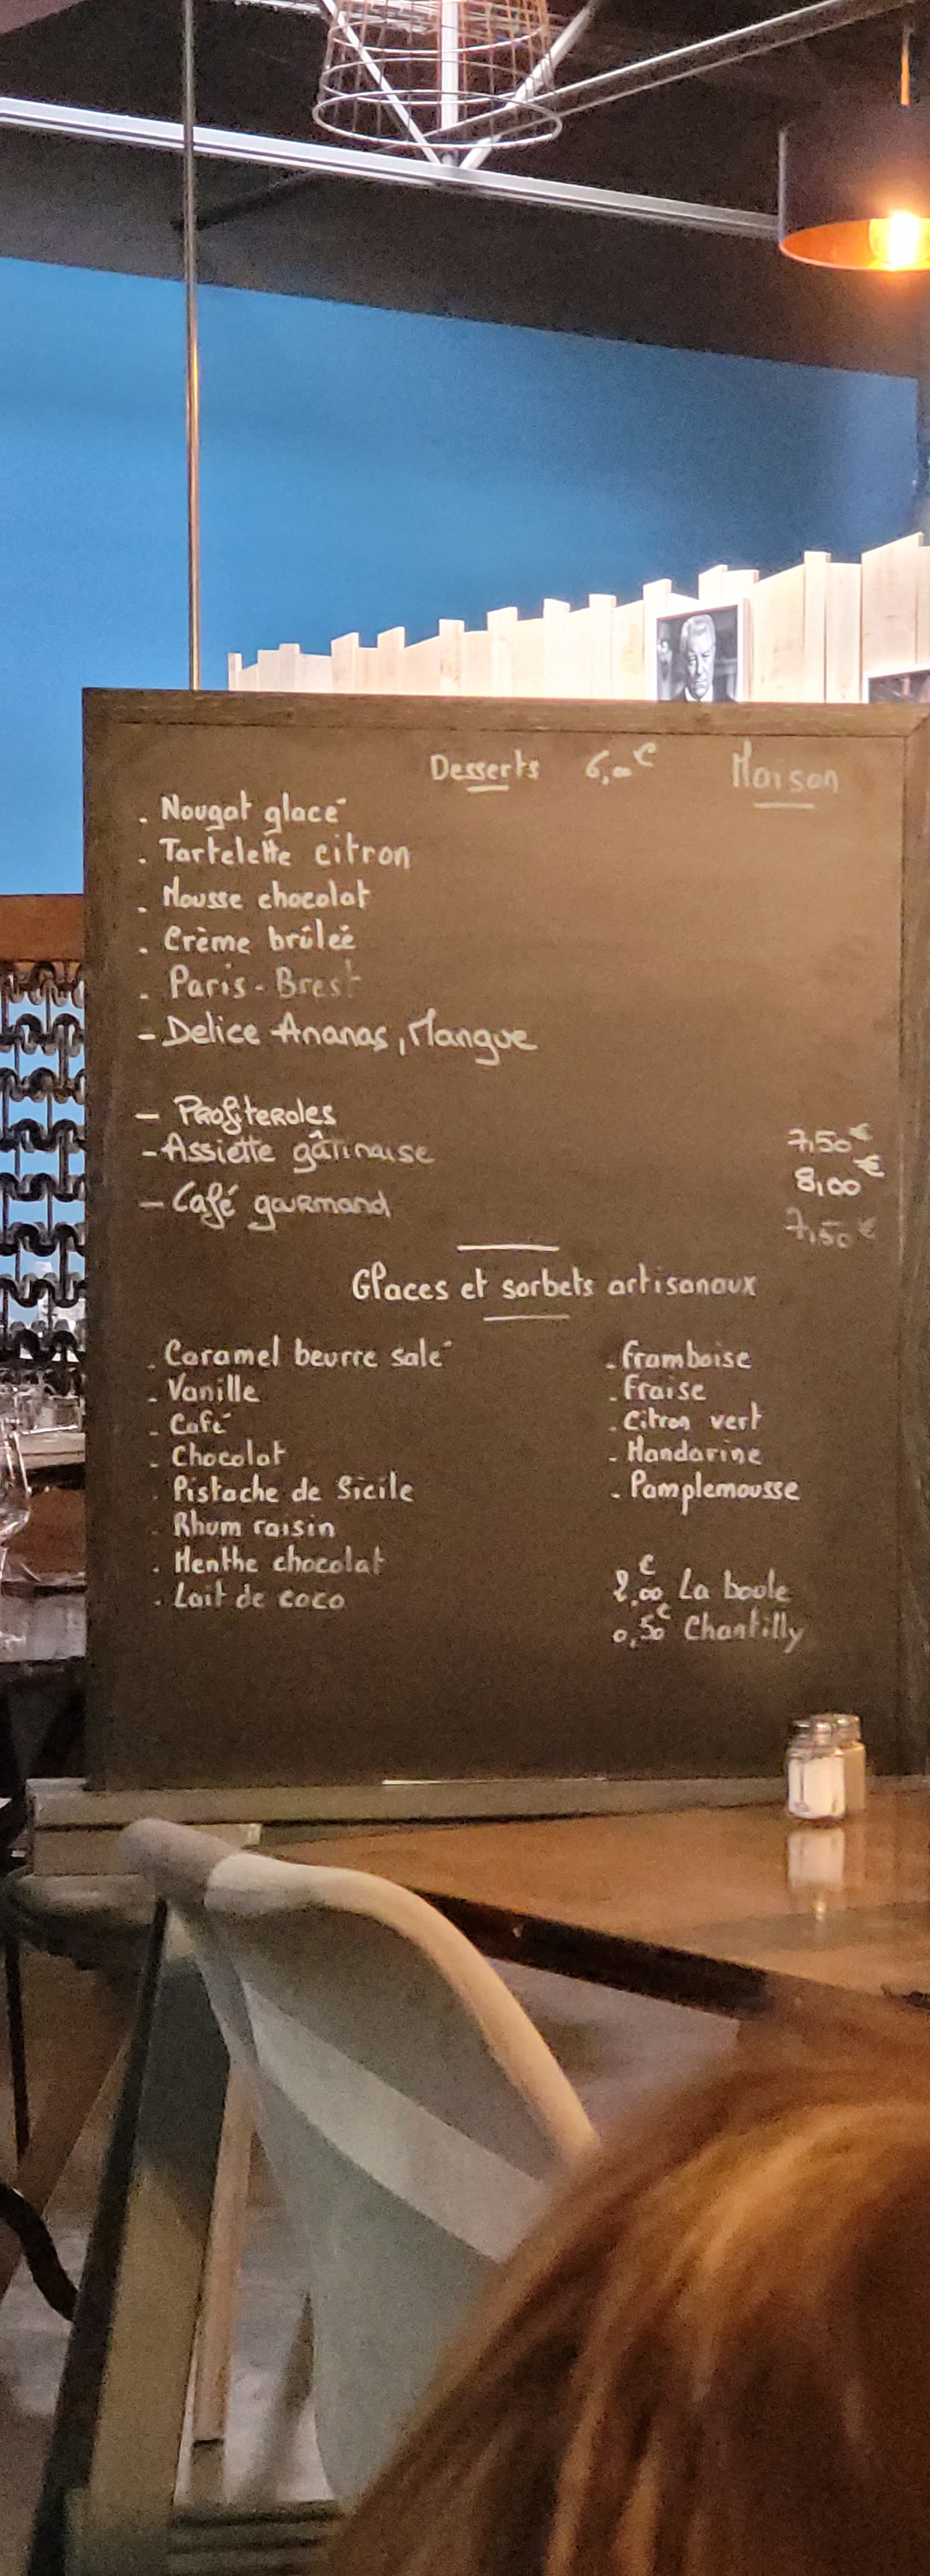 Desserts 6,00€ Maison
. Nougat glacé
. Tartelette citron
. Mousse chocolat
. Crème brûlée
. Paris-Brest
- Delice Ananas, Mangue
- Profiteroles 7,50€
- Assiette gâtinaise 8,00€
- Café gourmand 7,50€
Glaces et sorbets artisanaux
. Caramel beurre salé
. Vanille
. Café
. Chocolat
. Pistache de Sicile
. Rhum raisin
. Menthe chocolat
. Lait de coco
. Framboise
. Fraise
. Citron vert
. Mandarine
. Pamplemousse
2,00€ La boule
0,50€ Chantilly